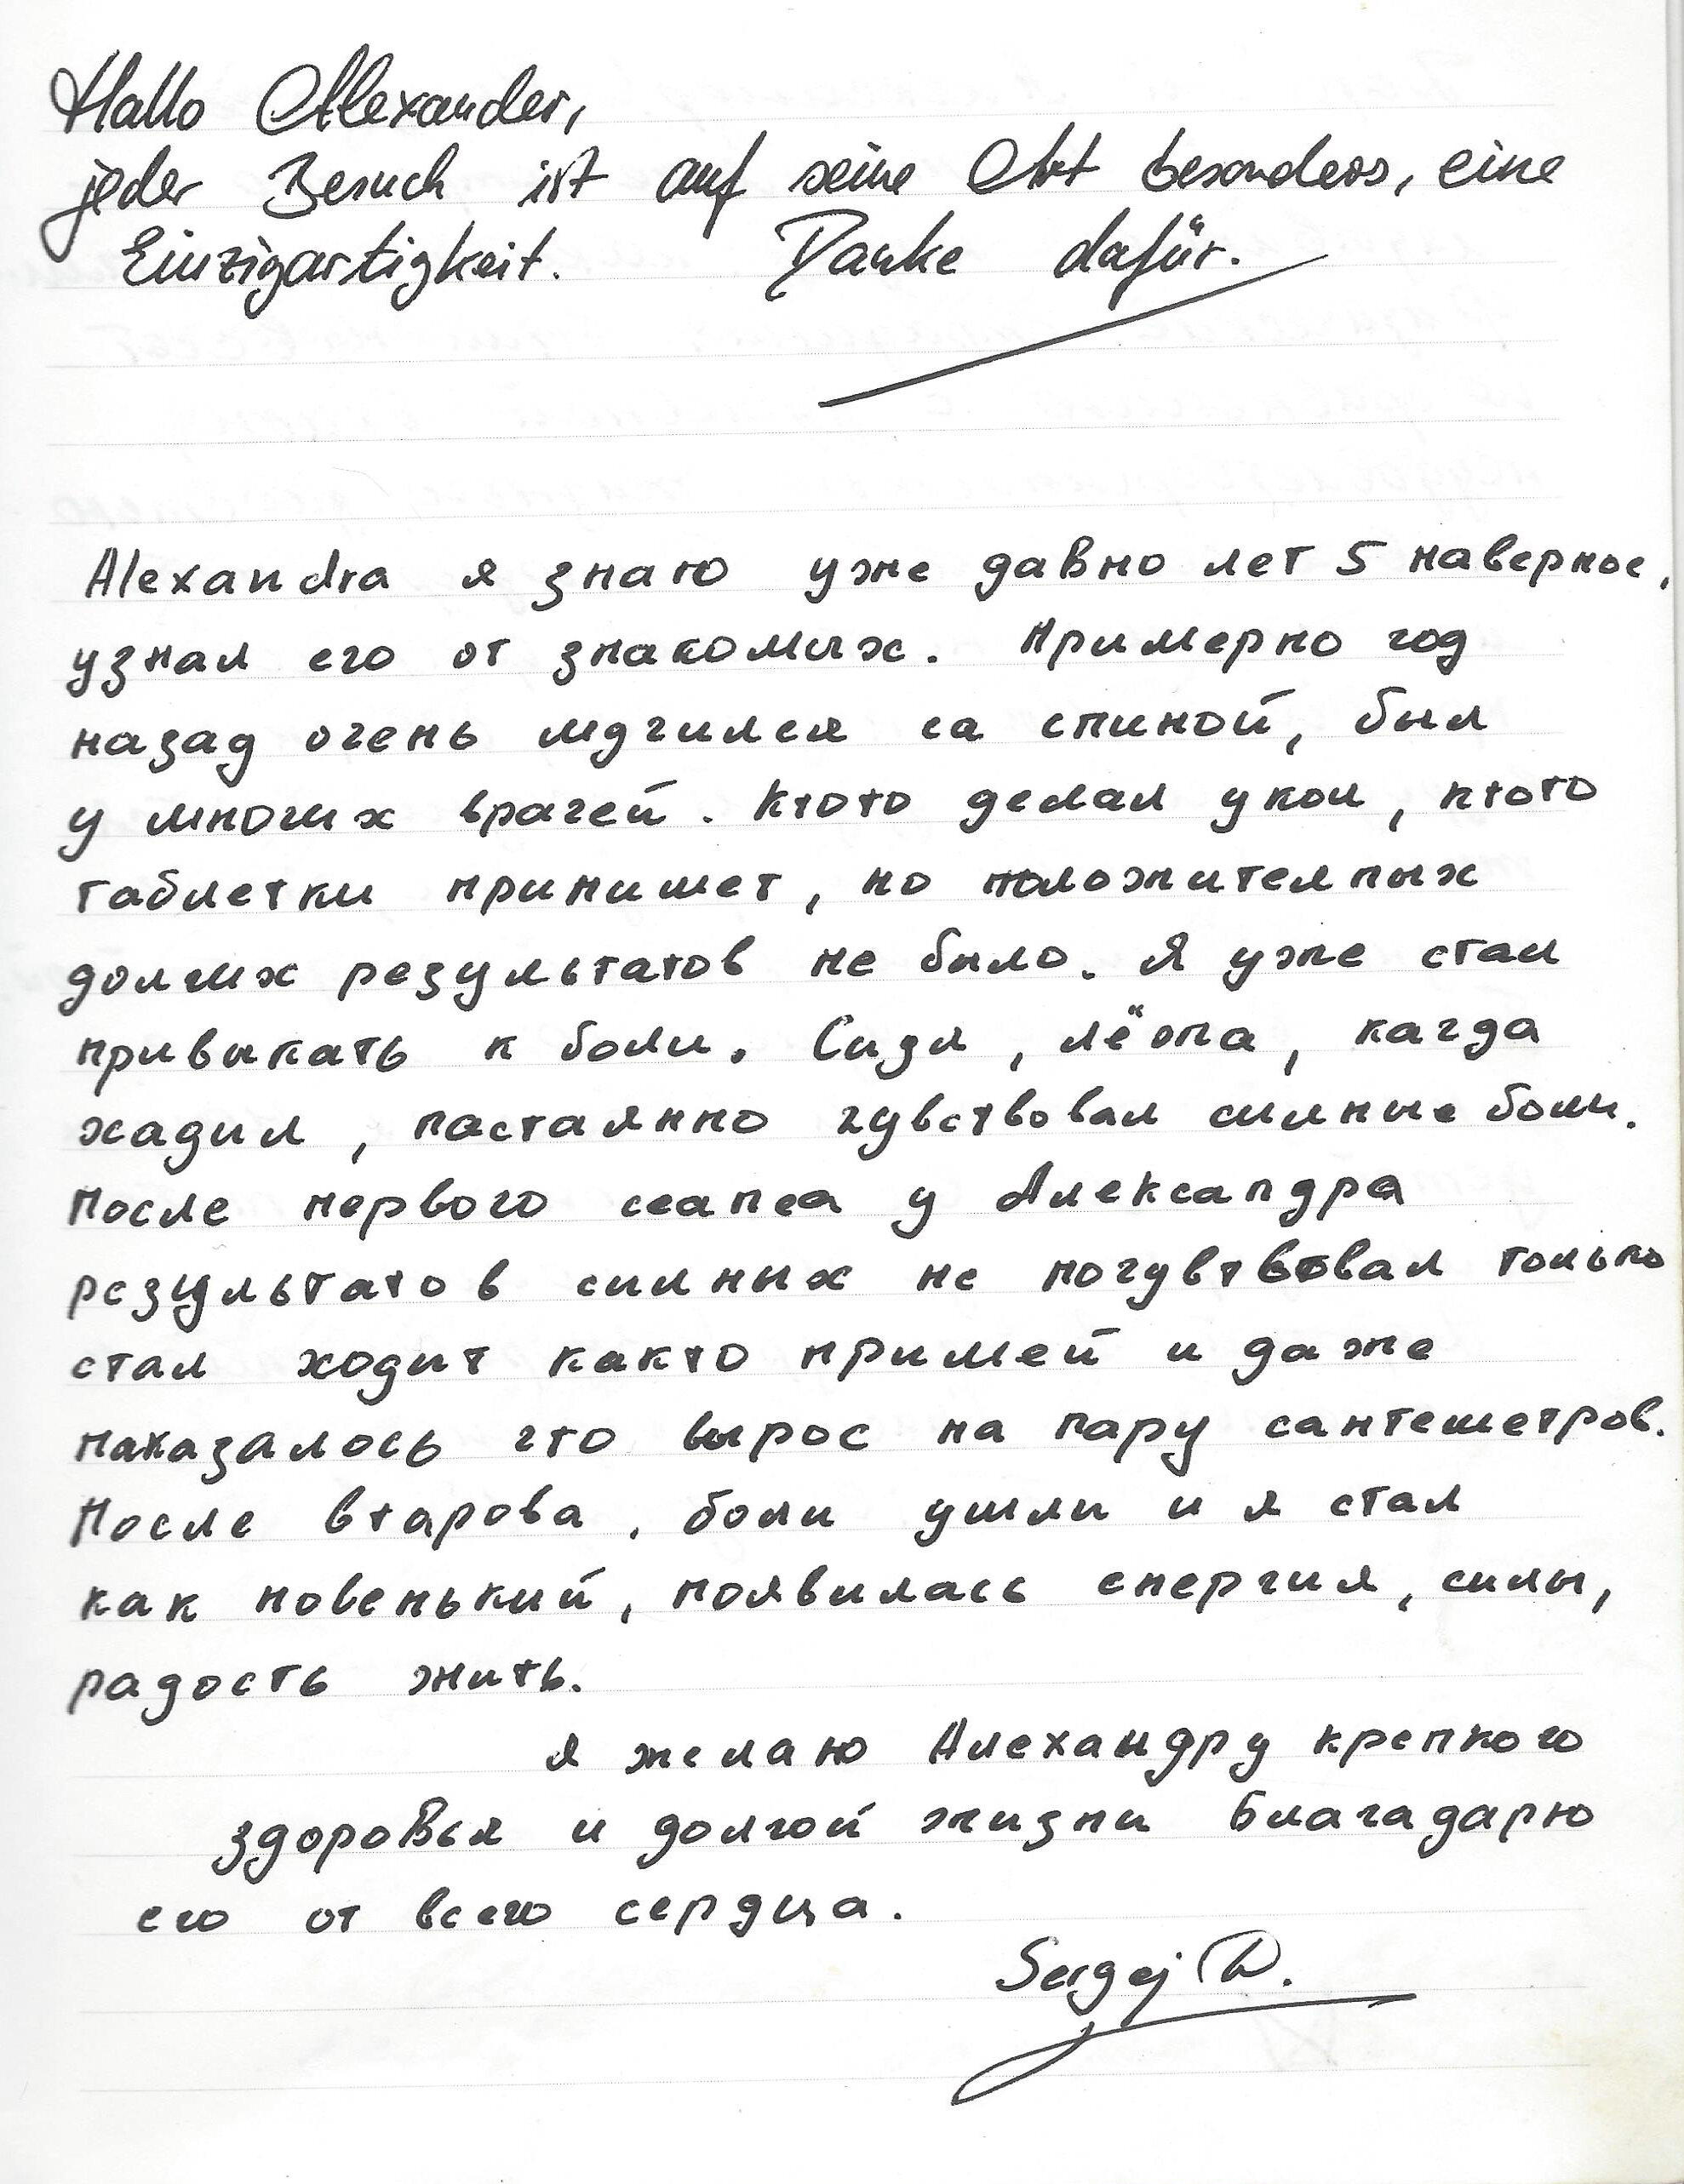 Hallo Alexander,
jeder Besuch ist auf seine Art besonders, eine
Einzigartigkeit. Danke dafür.
Alexandra я знаю уже давно лет 5 наверное,
узнал его от знакомых. Примерно год
назад очень мучился са спиной, был
у многих врачей. Ктото делал укол, ктото
таблетки принишет, но положителных
долгих результатов не было. Я уже стал
привыкать к боли. Сидя, лёжа, кагда
хадил, пастаянно чувствовал силные боли.
После первого сеанса у Александра
результатов силных не почувтвовал только
стал ходит както прямей и даже
паказалось что вырос на пару сантеметров.
После втарова, боли ушли и я стал
как новенький, появилась енергия, силы,
радость жить.
Я желаю Алехандру крепкого
здоровья и долгой жизни благадарю
его от всего сердца.
Sergej D.